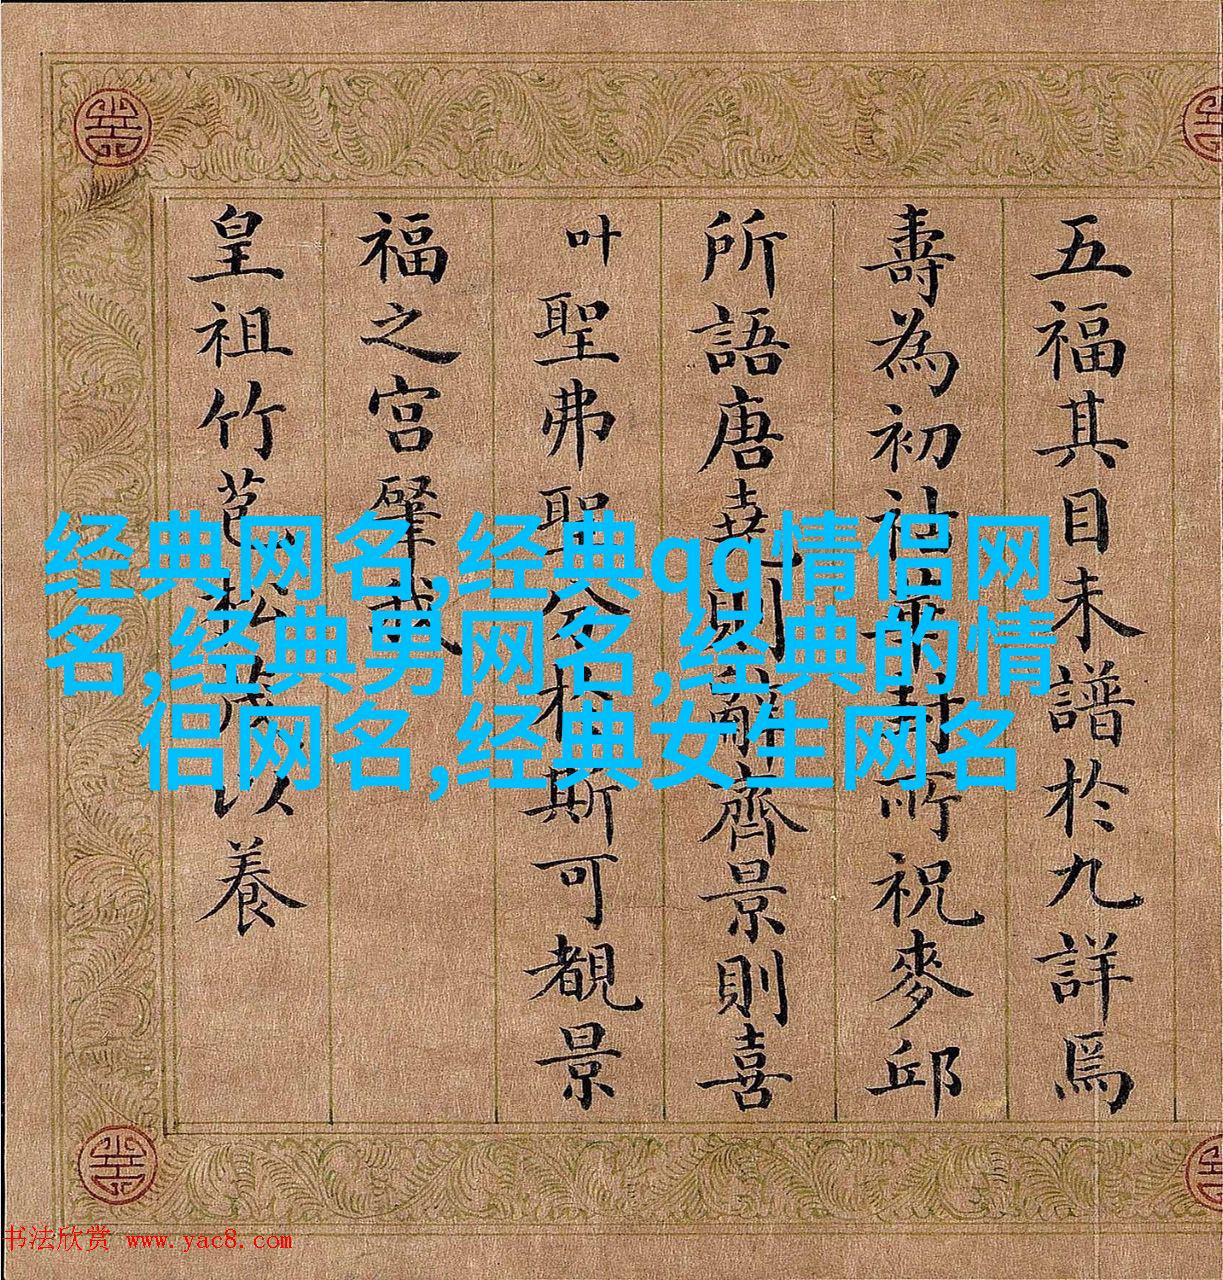 五福其目未譜於九詳焉
壽為初祉華封所祝麥邱
所語唐堯則辭齊景則喜
叶聖弗聖分析斯可覩景
福之宮肇
皇祖竹苞松茂以養
经典网名,经典qq情侣网
名,经典男网名,经典的情
侣网名,经典女生网名
书法欣赏 www.yac8.com